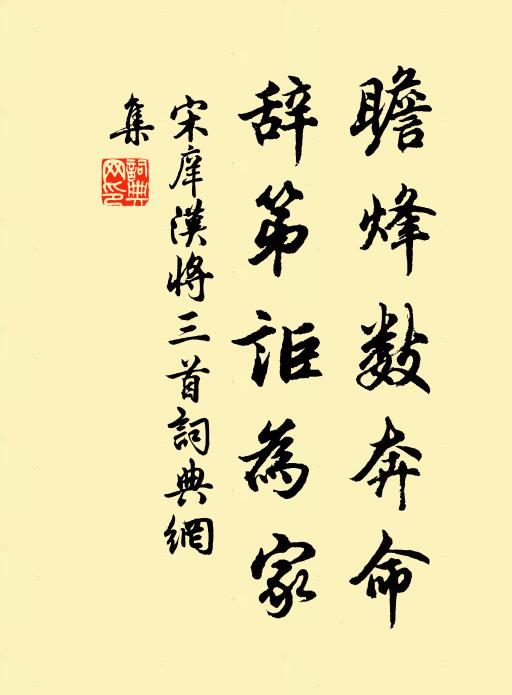 瞻烽数奔命
辞第詎為家
宋庠漢將三首詞典網
集
詞典網印